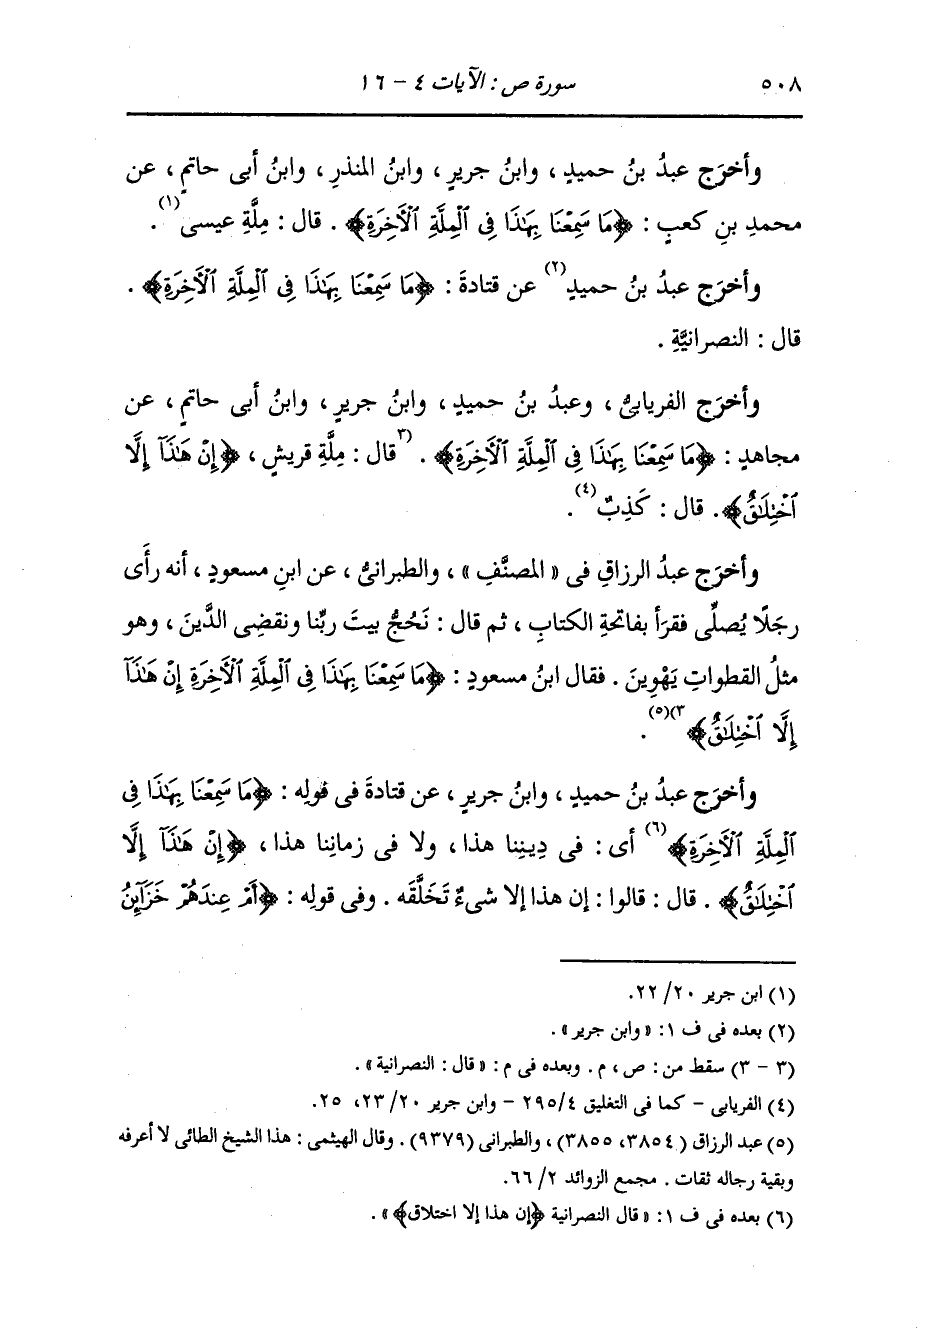 ٥٠٨ سورة ص : الآيات ٤ – ١٦
وأخرَج عبدُ بنُ حميدٍ ، وابنُ جريرٍ ، وابنُ المنذرِ ، وابنُ أبى حاتمٍ ، عن
محمدِ بنِ كعبٍ : ﴿مَا سَمِعْنَا بِهَٰذَا فِى ٱلْمِلَّةِ ٱلْأٓخِرَةِ﴾ . قال : مِلَّةِ عيسى(١) .
وأخرَج عبدُ بنُ حميدٍ(٢) عن قتادةَ : ﴿مَا سَمِعْنَا بِهَٰذَا فِى ٱلْمِلَّةِ ٱلْأٓخِرَةِ﴾ .
قال : النصرانيَّةِ .
وأخرَج الفريابىُّ ، وعبدُ بنُ حميدٍ ، وابنُ جريرٍ ، وابنُ أبى حاتمٍ ، عن
مجاهدٍ : ﴿مَا سَمِعْنَا بِهَٰذَا فِى ٱلْمِلَّةِ ٱلْأٓخِرَةِ﴾ . (٣قال : مِلَّةِ قريشٍ ، ﴿إِنْ هَٰذَآ إِلَّا
ٱخْتِلَٰقٌ﴾ . قال : كَذِبٌ(٤) .
وأخرَج عبدُ الرزاقِ فى « المصنَّفِ » ، والطبرانىُّ ، عن ابنِ مسعودٍ ، أنه رأَى
رجلًا يُصلِّى فقرَأ بفاتحةِ الكتابِ ، ثم قال : نَحُجُّ بيتَ ربِّنا ونقضِى الدَّينَ ، وهو
مثلُ القطواتِ يَهْوِينَ . فقال ابنُ مسعودٍ : ﴿مَا سَمِعْنَا بِهَٰذَا فِى ٱلْمِلَّةِ ٱلْأٓخِرَةِ إِنْ هَٰذَآ
إِلَّا ٱخْتِلَٰقٌ﴾ ٣)(٥) .
وأخرَج عبدُ بنُ حميدٍ ، وابنُ جريرٍ ، عن قتادةَ فى قولِه : ﴿مَا سَمِعْنَا بِهَٰذَا فِى
ٱلْمِلَّةِ ٱلْأٓخِرَةِ﴾(٦) أى : فى دِينِنا هذا ، ولا فى زمانِنا هذا ، ﴿إِنْ هَٰذَآ إِلَّا
ٱخْتِلَٰقٌ﴾ . قال : قالوا : إن هذا إلا شىءٌ تَخَلَّقَه . وفى قولِه : ﴿أَمْ عِندَهُمْ خَزَآئِنُ
(١) ابن جرير ٢٠/ ٢٢.
(٢) بعده فى ف ١: « وابن جرير » .
(٣ – ٣) سقط من : ص ، م . وبعده فى م : « قال : النصرانية » .
(٤) الفريابى – كما فى التغليق ٤/ ٢٩٥ – وابن جرير ٢٠/ ٢٣، ٢٥.
(٥) عبد الرزاق ( ٣٨٥٤، ٣٨٥٥) ، والطبرانى (٩٣٧٩) . وقال الهيثمى : هذا الشيخ الطائى لا أعرفه
وبقية رجاله ثقات . مجمع الزوائد ٢/ ٦٦.
(٦) بعده فى ف ١: « قال النصرانية ﴿إن هذا إلا اختلاق﴾ » .